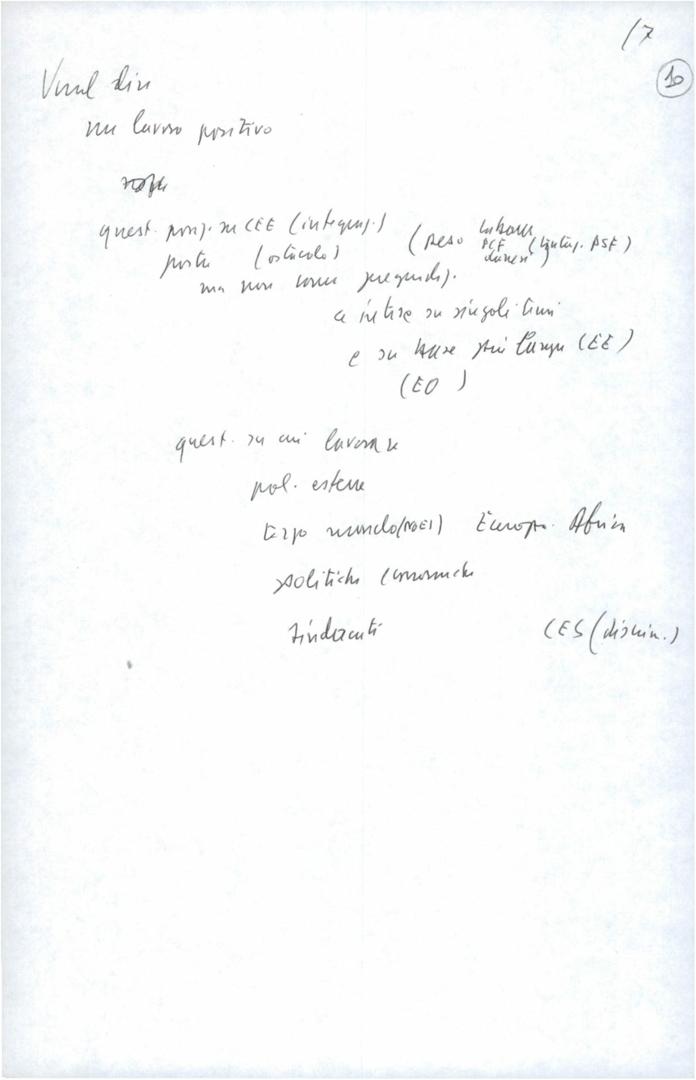 17
10
Vuol dire
un lavoro positivo
quest. posiz. su CEE (integraz.)
(peso Labour
PCF (Mitterr. PSF)
danesi)
posta (ostacolo)
ma non come pregiudiz.
e intese su singoli temi
e su base più larga (EE)
(EO)
quest. su cui lavorare
pol. estere
terzo mondo (NOEI) Europa. Africa
politiche economiche
sindacati CES (discrim.)